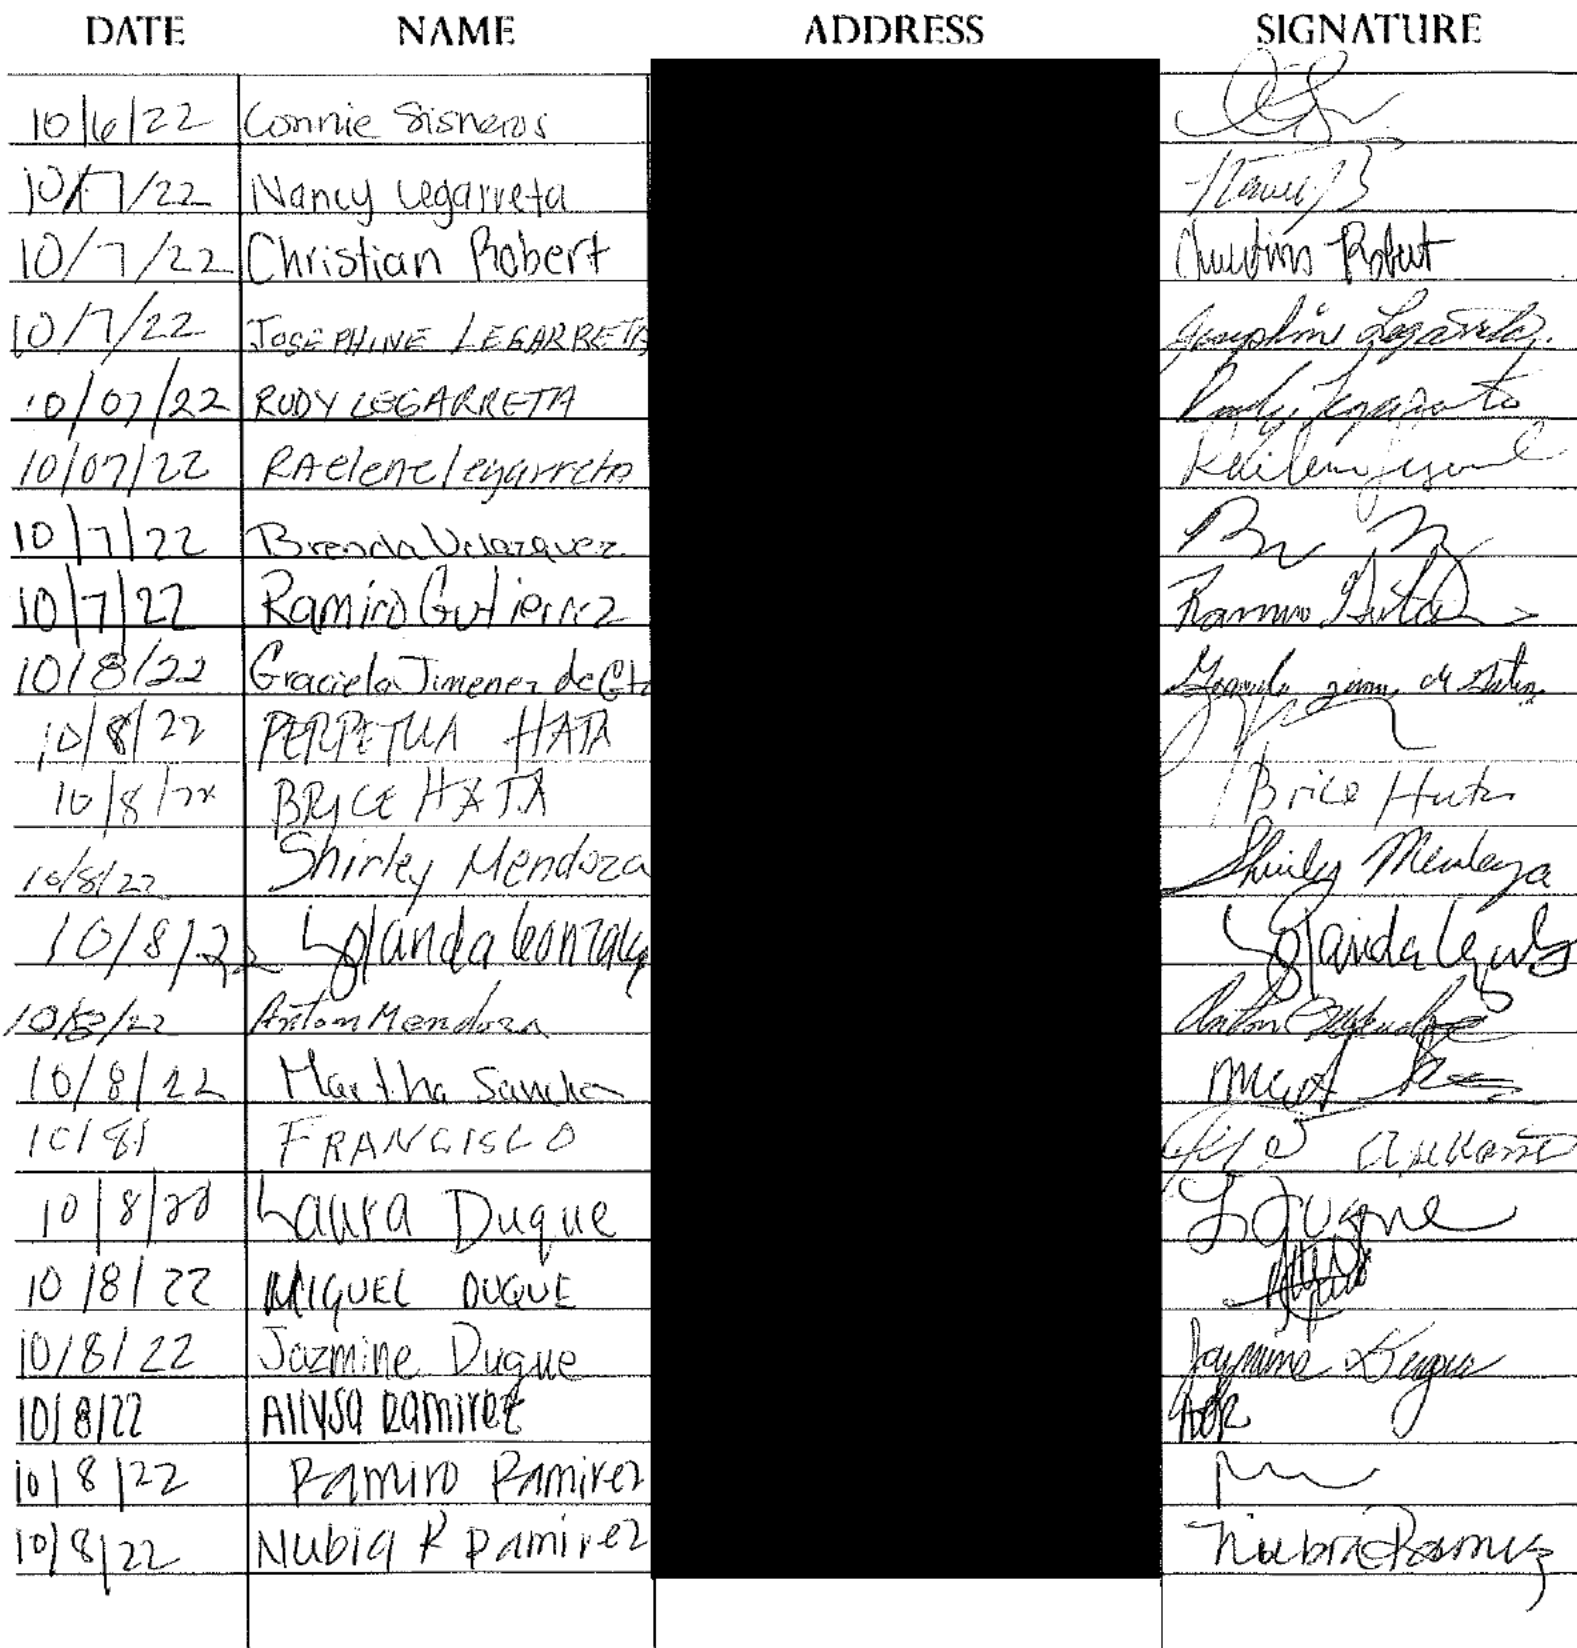 DATE NAME ADDRESS SIGNATURE
10/6/22 Connie Sisneros
10/7/22 Nancy Legarreta
10/7/22 Christian Robert Christian Robert
10/7/22 JOSEPHINE LEGARRETA Josephine Legarreta
10/07/22 RUDY LEGARRETA Rudy Legarreta
10/07/22 RAelene Legarreta
10/7/22 Brenda Velazquez
10/7/22 Ramiro Gutierrez Ramiro
10/8/22 Graciela Jimenez de Gtz
10/8/22 PERPETUA HATA
10/8/22 BRYCE HATA Brice Hata
10/8/22 Shirley Mendoza Shirley Mendoza
10/8/22 Yolanda Gonzalez Yolanda
10/8/22 Anton Mendoza Anton
10/8/22 Martha Sanchez
10/8/ FRANCISCO
10/8/22 Laura Duque L Duque
10/8/22 MIGUEL DUQUE
10/8/22 Jazmine Duque Jazmine Duque
10/8/22 Allysa Ramirez
10/8/22 Ramiro Ramirez
10/8/22 Nubia R Ramirez Nubia Ramirez